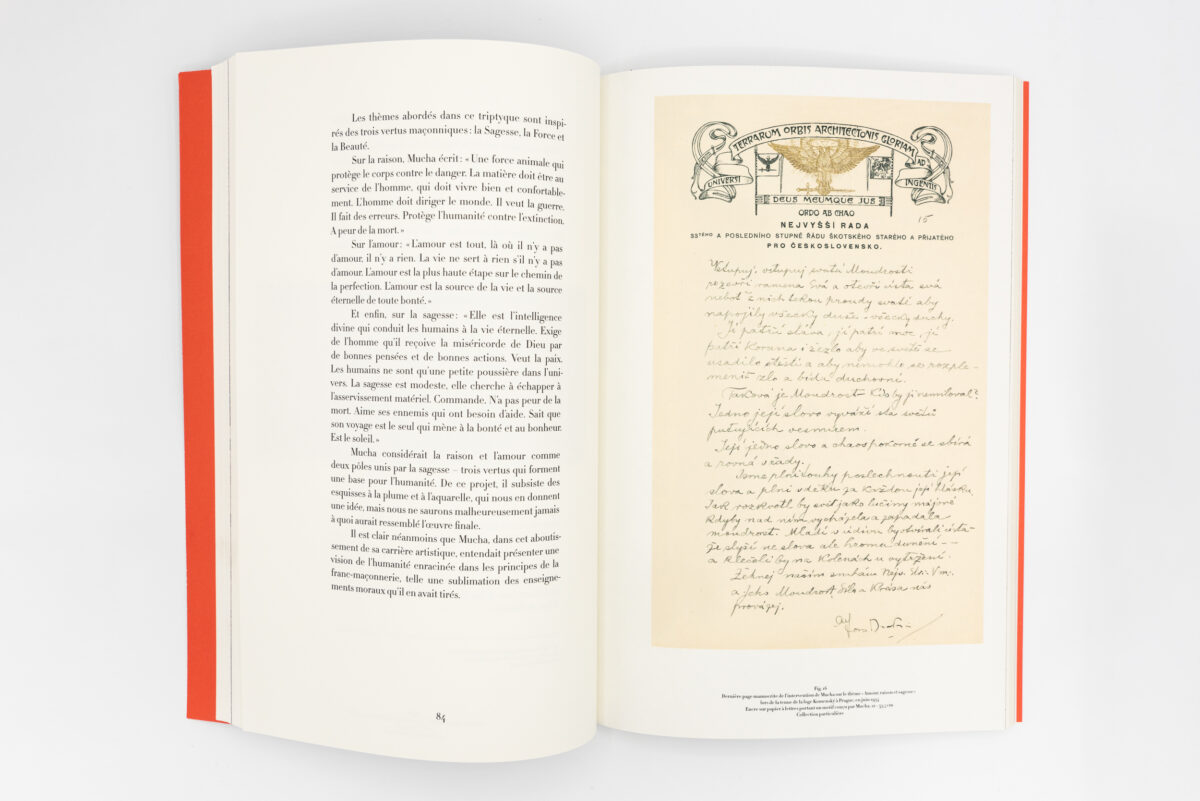 Les thèmes abordés dans ce triptyque sont inspi-
rés des trois vertus maçonniques : la Sagesse, la Force et
la Beauté.
Sur la raison, Mucha écrit : « Une force animale qui
protège le corps contre le danger. La matière doit être au
service de l'homme, qui doit vivre bien et confortable-
ment. L'homme doit diriger le monde. Il veut la guerre.
Il fait des erreurs. Protège l'humanité contre l'extinction.
A peur de la mort. »
Sur l'amour : « L'amour est tout, là où il n'y a pas
d'amour, il n'y a rien. La vie ne sert à rien s'il n'y a pas
d'amour. L'amour est la plus haute étape sur le chemin de
la perfection. L'amour est la source de la vie et la source
éternelle de toute bonté. »
Et enfin, sur la sagesse : « Elle est l'intelligence
divine qui conduit les humains à la vie éternelle. Exige
de l'homme qu'il reçoive la miséricorde de Dieu par
de bonnes pensées et de bonnes actions. Veut la paix.
Les humains ne sont qu'une petite poussière dans l'uni-
vers. La sagesse est modeste, elle cherche à échapper à
l'asservissement matériel. Commande. N'a pas peur de la
mort. Aime ses ennemis qui ont besoin d'aide. Sait que
son voyage est le seul qui mène à la bonté et au bonheur.
Est le soleil. »
Mucha considérait la raison et l'amour comme
deux pôles unis par la sagesse – trois vertus qui forment
une base pour l'humanité. De ce projet, il subsiste des
esquisses à la plume et à l'aquarelle, qui nous en donnent
une idée, mais nous ne saurons malheureusement jamais
à quoi aurait ressemblé l'œuvre finale.
Il est clair néanmoins que Mucha, dans cet aboutis-
sement de sa carrière artistique, entendait présenter une
vision de l'humanité enracinée dans les principes de la
franc-maçonnerie, telle une sublimation des enseigne-
ments moraux qu'il en avait tirés.
84
UNIVERSI TERRARUM ORBIS ARCHITECTONIS GLORIAM AD INGENTIS
DEUS MEUMQUE JUS
ORDO AB CHAO
15
NEJVYŠŠÍ RADA
33TÉHO A POSLEDNÍHO STUPNĚ ŘÁDU SKOTSKÉHO STARÉHO A PŘIJATÉHO
PRO ČESKOSLOVENSKO.
Vstupuj, vstupuj svatá Moudrosti
rozevři ramena Svá a otevři ústa svá
neboť z nich tekou proudy svaté aby
napojily všecky duše všecky duchy.
Jí patří sláva, jí patří moc, jí
patří Koruna i žezlo aby ve světě se
usadilo štěstí a aby nemohlo se rozple-
menit zlo a bída duchovní.
Taková je Moudrost. Kdo by jí nemiloval?
Jedno její slovo vyváží sta světů
putujících vesmírem.
Její jedno slovo a chaos pokorně se sbírá
a rovná v řady.
Jsme plni touhy poslechnouti její
slova a plni vděku za každou její hlásku.
Tak rozkvetl by svět jako lučiny májové
kdyby nad ním vycházela a zapadala
moudrost. Mladí v údivu by otvírali ústa
že slyší ne slova ale hromu dunění --
a klečeli by na kolenách u vytržení.
Žehnej našim snahám Nejv.
a Jeho Moudrost Síla a Krása nás
provázej.
Fig. 16
Dernière page manuscrite de l'intervention de Mucha sur le thème « Amour, raison et sagesse »
lors de la tenue de la loge Komenský à Prague, en juin 1934
Encre sur papier à lettres portant un motif conçu par Mucha,
Collection particulière